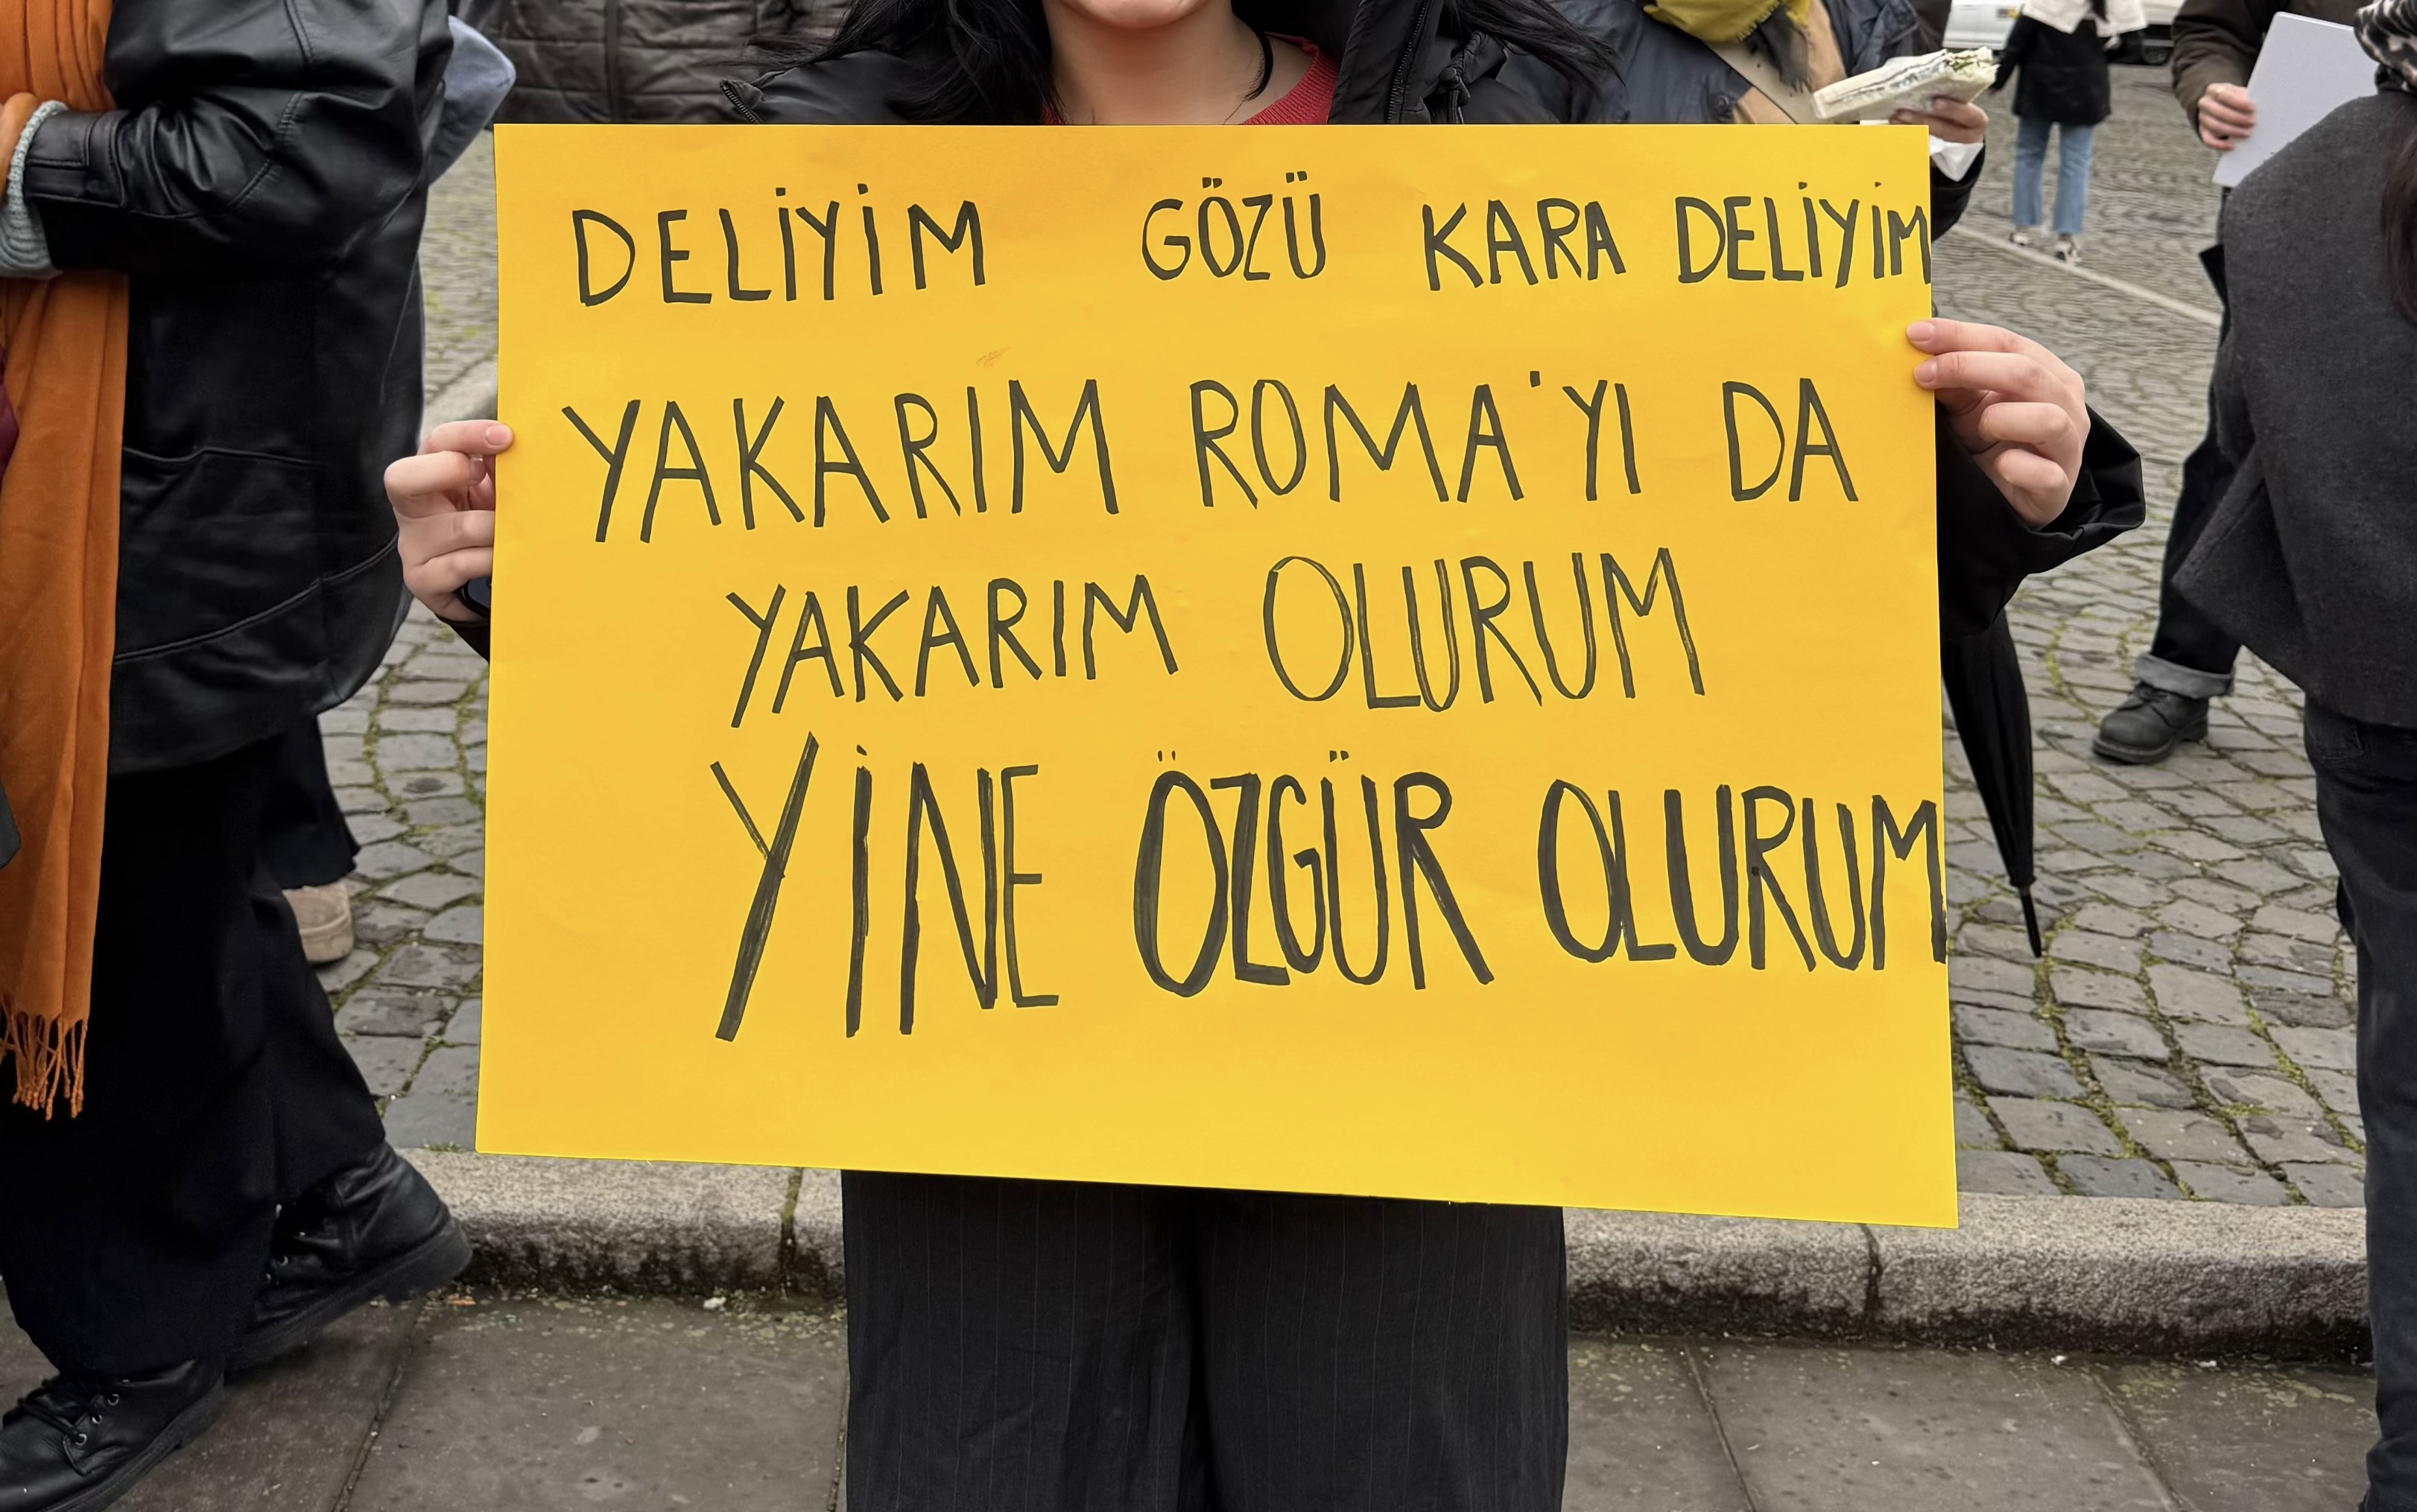 DELİYİM GÖZÜ KARA DELİYİM
YAKARIM ROMA'YI DA
YAKARIM OLURUM
YİNE ÖZGÜR OLURUM